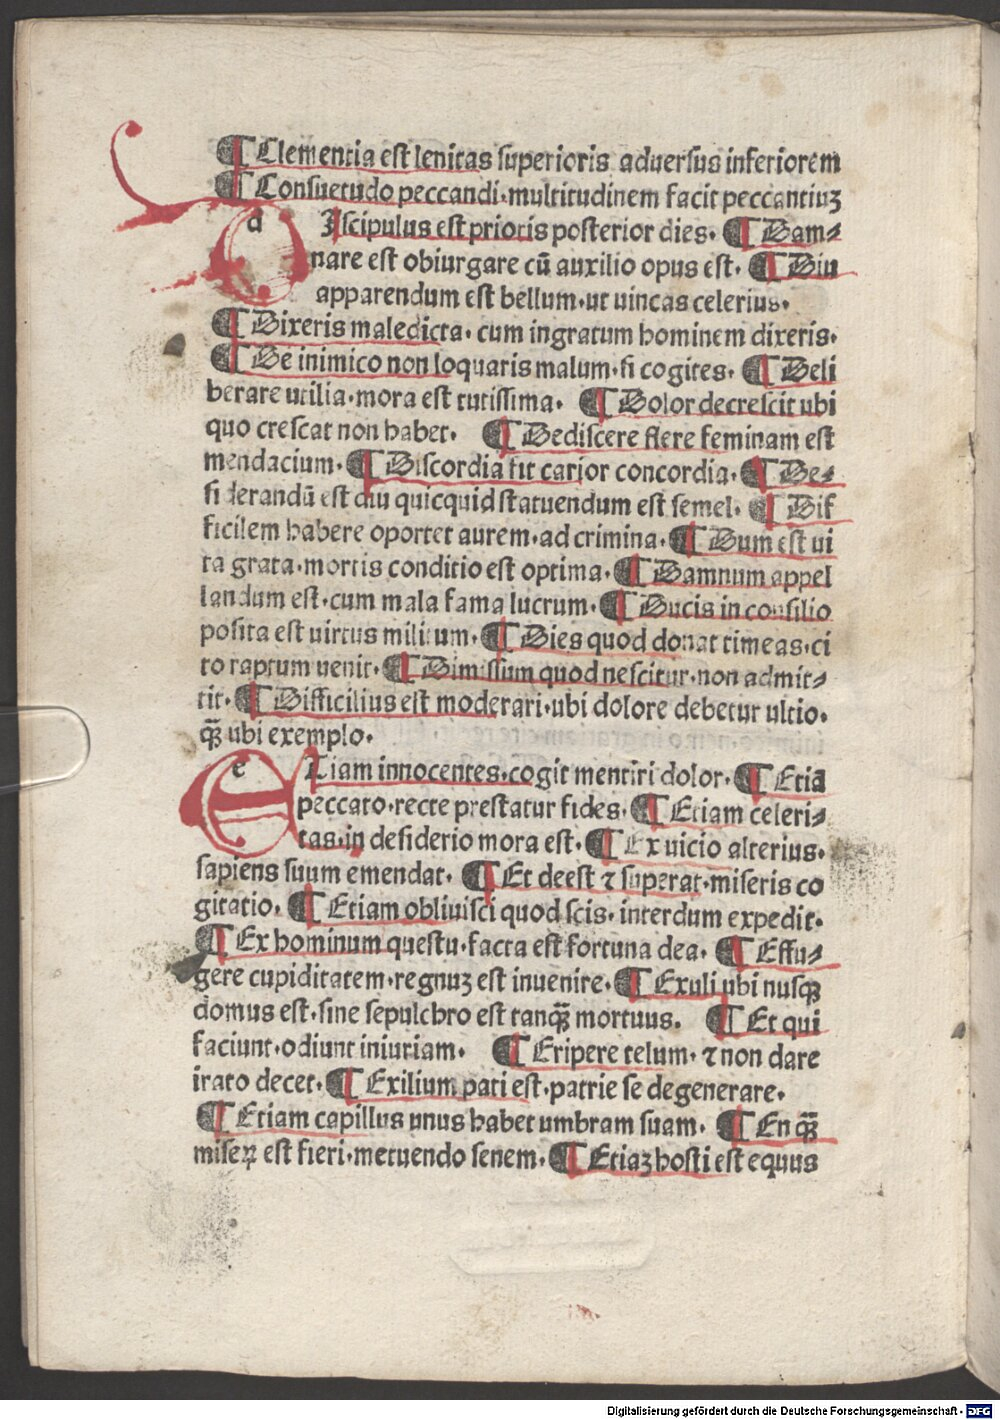 ¶ Clementia est lenitas superioris aduersus inferiorem
¶ Consuetudo peccandi·multitudinem facit peccantiuꝫ
d Iscipulus est prioris posterior dies. ¶ Dam⸗
nare est obiurgare cū auxilio opus est. ¶ Diu
apparendum est bellum·ut uincas celerius.
¶ Dixeris maledicta· cum ingratum hominem dixeris.
¶ De inimico non loquaris malum·si cogites. ¶ Deli
berare utilia·mora est tutissima. ¶ Dolor decrescit ubi
quo crescat non habet. ¶ Dediscere flere feminam est
mendacium. ¶ Discordia fit carior concordia. ¶ De⸗
siderandū est diu quicquid statuendum est semel. ¶ Dif
ficilem habere oportet aurem·ad crimina. ¶ Dum est ui
ta grata·mortis conditio est optima. ¶ Damnum appel
landum est·cum mala fama lucrum. ¶ Ducis in consilio
posita est uirtus militum. ¶ Dies quod donat timeas·ci
to raptum uenit. ¶ Dimissum quod nescitur·non admit⸗
tit. ¶ Difficilius est moderari·ubi dolore debetur ultio.
qꝫ ubi exemplo.
e Tiam innocentes·cogit mentiri dolor. ¶ Etiā
peccato·recte prestatur fides. ¶ Etiam celeri⸗
tas·in desiderio mora est. ¶ Ex uicio alterius.
sapiens suum emendat. ¶ Et deest ⁊ superat·miseris co
gitatio. ¶ Etiam obliuisci quod scis· interdum expedit.
¶ Ex hominum questu·facta est fortuna dea. ¶ Effu⸗
gere cupiditatem·regnuꝫ est inuenire. ¶ Exuli ubi nusqꝫ
domus est·sine sepulchro est tanqꝫ mortuus. ¶ Et qui
faciunt·odiunt iniuriam. ¶ Eripere telum· ⁊ non dare
irato decet. ¶ Exilium pati est·patrie se degenerare.
¶ Etiam capillus unus habet umbram suam. ¶ En qꝫ
miseꝝ est fieri·metuendo senem. ¶ Etiaꝫ hosti est equus
Digitalisierung gefördert durch die Deutsche Forschungsgemeinschaft - DFG